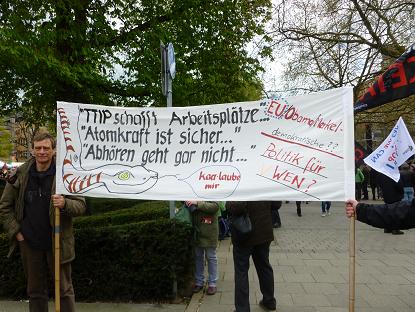 "TTIP schafft Arbeitsplätze..."
"Atomkraft ist sicher..."
"Abhören geht gar nicht..."
Kaa-laube
mir
EU/Obama/Merkel-
demokratische??
Politik für
WEN?